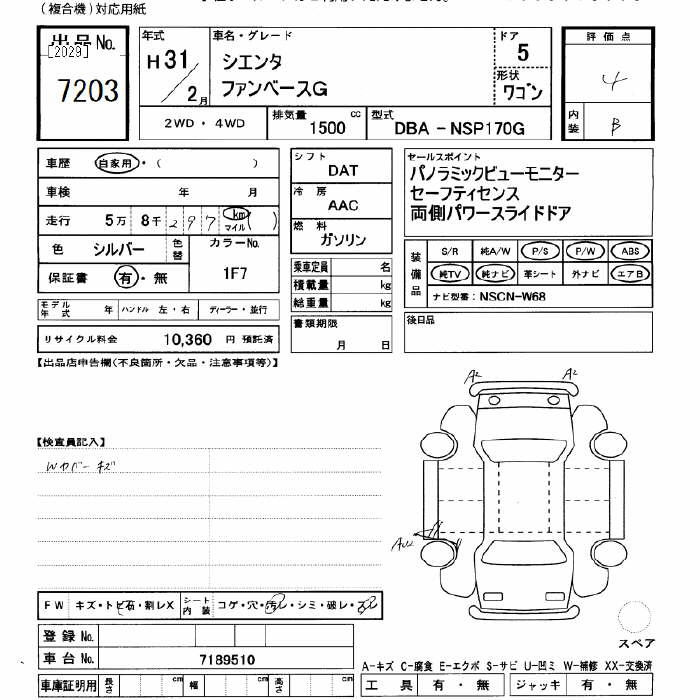 (複合機)対応用紙
出品No.
[2029]
7203
年式
H31/2月
車名・グレード
シエンタ
ファンベースG
ドア
5
形状
ワゴン
評価点
4
内装
B
2WD・4WD
排気量 1500 cc
型式 DBA-NSP170G
車歴 自家用・( )
車検 年 月
走行 5万 8千 2 9 7 km マイル( )
色 シルバー 色替
カラーNo.
1F7
保証書 有・無
モデル年式 年 ハンドル 左・右 ディーラー・並行
リサイクル料金 10,360 円 預託済
シフト
DAT
冷房
AAC
燃料
ガソリン
乗車定員 名
積載量 kg
総重量 kg
書類期限
月 日
セールスポイント
パノラミックビューモニター
セーフティセンス
両側パワースライドドア
装備品
S/R 純A/W P/S P/W ABS
純TV 純ナビ 革シート 外ナビ エアB
ナビ型番: NSCN-W68
後日品
【出品店申告欄(不良箇所・欠品・注意事項等)】
A2 A2
【検査員記入】
Wカバーキズ
AU2
FW キズ・トビ石・割レX シート内装 コゲ・穴・汚レ・シミ・破レ・
登録No.
車台No. 7189510
車庫証明用 長さ cm 幅 cm 高さ cm
スペア
A-キズ C-腐食 E-エクボ S-サビ U-凹ミ W-補修 XX-交換済
工具 有・無 ジャッキ 有・無